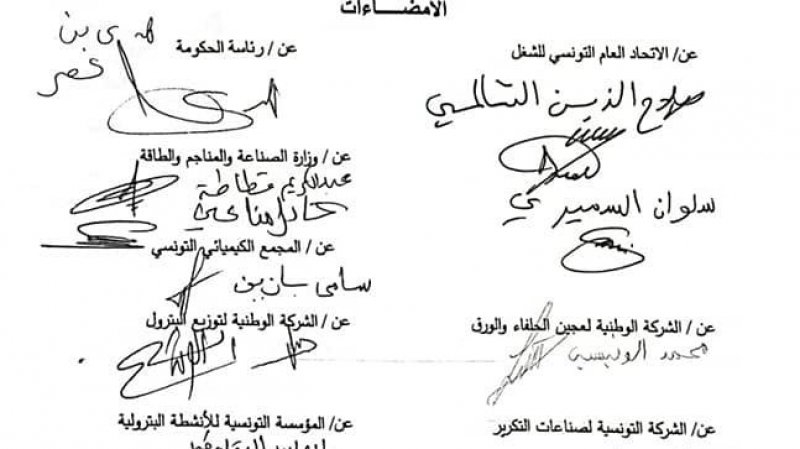 الامضـــاءات
عن/ الاتحاد العام التونسي للشغل
صلاح الدين السالمي
سلوان السميري
عن / الشركة الوطنية لعجين الحلفاء والورق
محمد
عن/ الشركة التونسية لصناعات التكرير
عن / رئاسة الحكومة
بن
عن / وزارة الصناعة والمناجم والطاقة
عبد الكريم قطاطة
عن / المجمع الكيميائي التونسي
سامي
عن / الشركة الوطنية لتوزيع البترول
عن/ المؤسسة التونسية للأنشطة البترولية